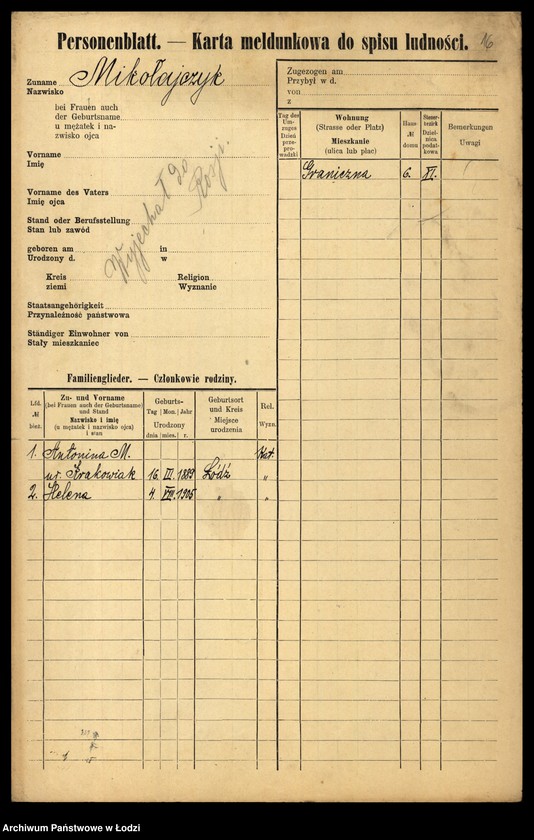 Personenblatt. — Karta meldunkowa do spisu ludności.
16
Zuname Mikołajczyk
Nazwisko
bei Frauen auch
der Geburtsname
u mężatek i na-
zwisko ojca
Vorname
Imię
Vorname des Vaters
Imię ojca
Stand oder Berufsstellung
Stan lub zawód
geboren am in
Urodzony d. w
Kreis Religion
ziemi Wyznanie
Staatsangehörigkeit
Przynależność państwowa
Ständiger Einwohner von
Stały mieszkaniec
Wyjechał do
Rosji.
Zugezogen am
Przybył w d.
von
z
Tag des Um-zuges Dzień prze-pro-wadzki
Wohnung
(Strasse oder Platz)
Mieszkanie
(ulica lub plac)
Haus-
№
domu
Steuer-bezirk Dziel-nica podat-kowa
Bemerkungen
Uwagi
Graniczna 6. XI.
Familienglieder. — Członkowie rodziny.
Lfd.
№
bież.
Zu- und Vorname
(bei Frauen auch der Geburtsname)
und Stand
Nazwisko i imię
(u mężatek i nazwisko ojca)
i stan
Geburts-
Tag Mon. Jahr
Urodzony
dnia mies. r.
Geburtsort
und Kreis
Miejsce
urodzenia
Rel.
Wyzn.
1. Antonina M. Kat.
ur. Krakowiak 16. III. 1889 Łódź "
2. Helena 4 VIII. 1905 " "
Archiwum Państwowe w Łodzi